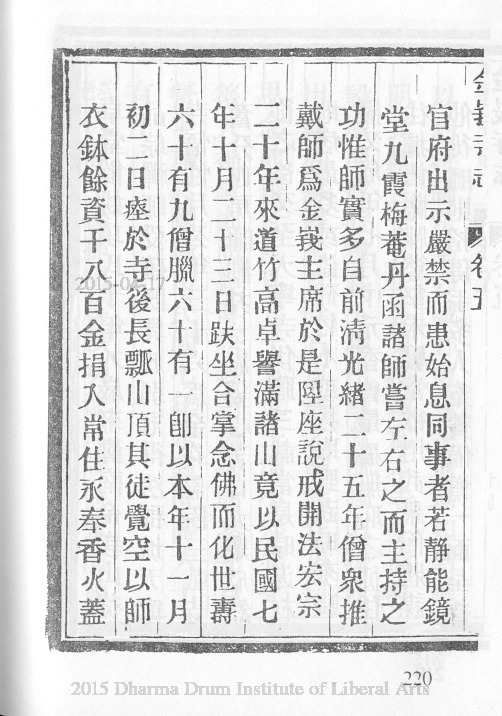 金峩寺志 卷五
官府出示嚴禁而患始息同事者若靜能鏡
堂九霞梅菴丹函諸師嘗左右之而主持之
功惟師實多自前淸光緖二十五年僧衆推
戴師爲金峩主席於是陞座說戒開法宏宗
二十年來道竹高卓譽滿諸山竟以民國七
年十月二十三日趺坐合掌念佛而化世壽
六十有九僧臘六十有一卽以本年十一月
初二日瘞於寺後長瓢山頂其徒覺空以師
衣鉢餘資千八百金捐入常住永奉香火蓋
2015-04-17
220
2015 Dharma Drum Institute of Liberal Arts